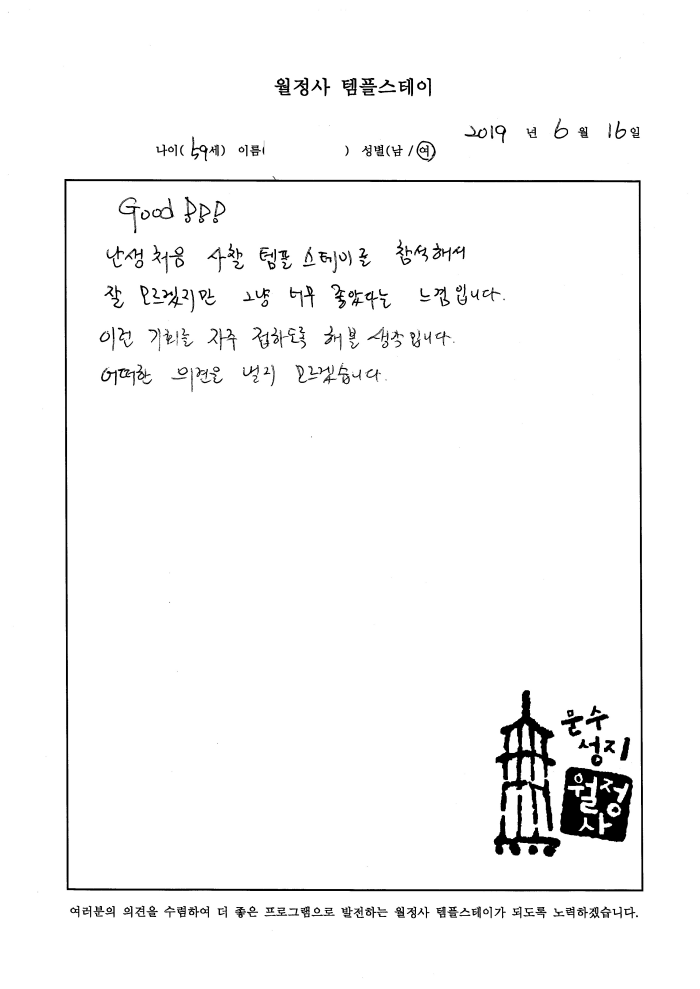 월정사 템플스테이
2019 년 6 월 16 일
나이( 59 세) 이름( ) 성별(남 / 여)
Good
난생 처음 사찰 템플 스테이를 참석해서
잘 모르겠지만 그냥 너무 좋았다는 느낌입니다.
이런 기회를 자주 접하도록 해볼 생각입니다.
어떠한 의견을 낼지 모르겠습니다.
문수
성지
월정
사
여러분의 의견을 수렴하여 더 좋은 프로그램으로 발전하는 월정사 템플스테이가 되도록 노력하겠습니다.